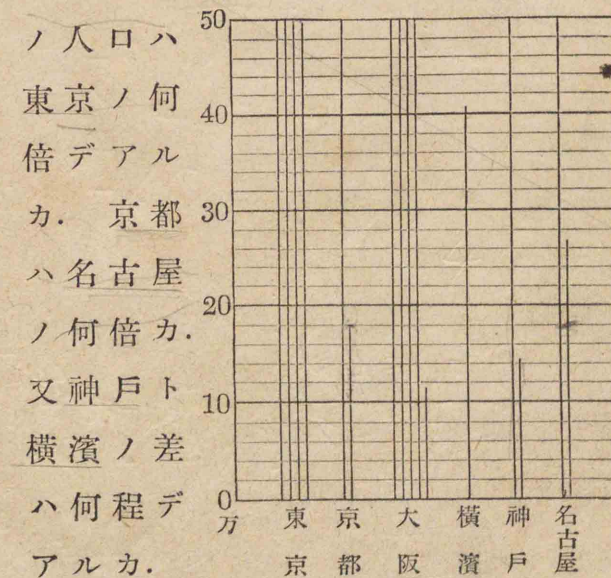 ノ人口ハ
東京ノ何
倍デアル
カ. 京都
ハ名古屋
ノ何倍カ.
又神戶ト
橫濱ノ差
ハ何程デ
アルカ.
50
40
30
20
10
0
万
東京
京都
大阪
橫濱
神戶
名古屋